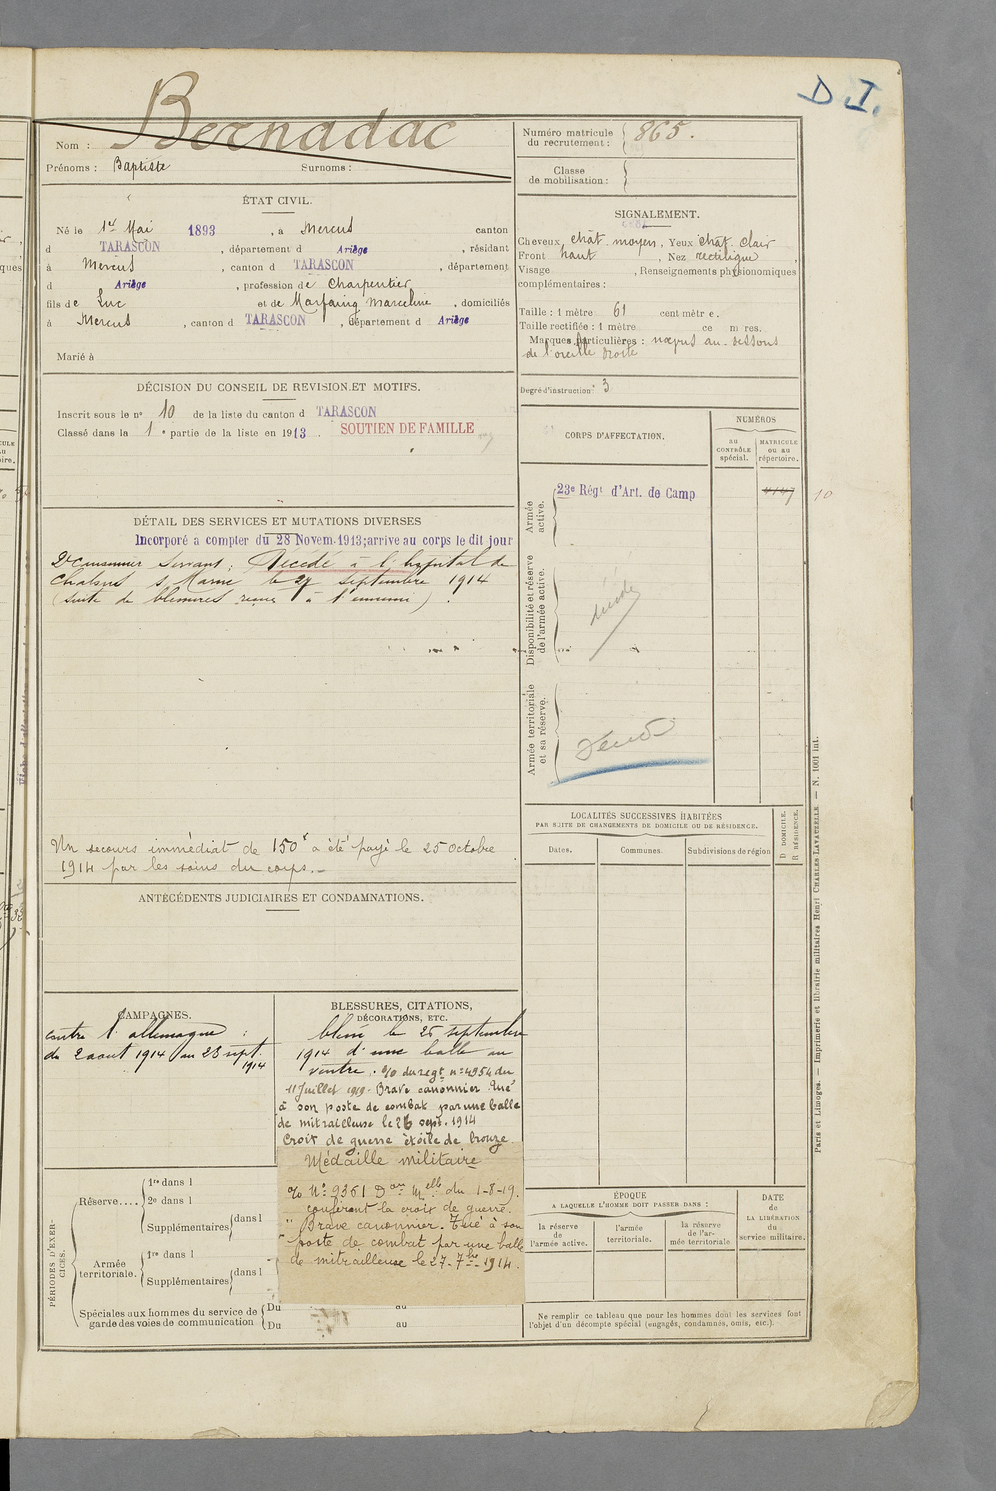 D. I.
Nom : Bernadac
Prénoms : Baptiste Surnoms :
Numéro matricule du recrutement : 865.
Classe de mobilisation :
ÉTAT CIVIL.
Né le 1er Mai 1893, à Mercus canton
d TARASCON, département d Ariège, résidant
à Mercus, canton d TARASCON, département
d Ariège, profession de Charpentier
fils de Luc et de Marfaing Marceline, domiciliés
à Mercus, canton d TARASCON, département d Ariège
Marié à
SIGNALEMENT.
Cheveux chât. moyen, Yeux chât. clair
Front haut, Nez rectiligne,
Visage , Renseignements physionomiques
complémentaires :
Taille : 1 mètre 61 centimètre.
Taille rectifiée : 1 mètre ce m res.
Marques particulières : nœvus au-dessous
de l'oreille droite
Degré d'instruction : 3
DÉCISION DU CONSEIL DE REVISION ET MOTIFS.
Inscrit sous le n° 10 de la liste du canton d TARASCON
Classé dans la 1e partie de la liste en 1913. SOUTIEN DE FAMILLE
DÉTAIL DES SERVICES ET MUTATIONS DIVERSES
Incorporé a compter du 28 Novem. 1913; arrive au corps le dit jour
2e Canonnier Servant ; Décédé à l'hôpital de
Chalons s/ Marne le 27 septembre 1914
(suite de blessures reçues à l'ennemi).
Un secours immédiat de 150f a été payé le 25 Octobre
1914 par les soins du corps.-
CORPS D'AFFECTATION.
NUMÉROS
au CONTRÔLE spécial.
MATRICULE ou au répertoire.
Armée active.
23e Régt d'Art. de Camp
10
Disponibilité et réserve de l'armée active.
Armée territoriale et sa réserve.
LOCALITÉS SUCCESSIVES HABITÉES
PAR SUITE DE CHANGEMENTS DE DOMICILE OU DE RÉSIDENCE.
Dates. Communes. Subdivisions de région
D DOMICILE.
R RÉSIDENCE.
ANTÉCÉDENTS JUDICIAIRES ET CONDAMNATIONS.
CAMPAGNES.
contre l'allemagne :
du 2 aout 1914 au 23 sept.
1914
BLESSURES, CITATIONS,
DÉCORATIONS, ETC.
blessé le 25 septembre
1914 d'une balle au
ventre. o/o du regt n° 4954 du
11 Juillet 1919. Brave canonnier. Tué
à son poste de combat par une balle
de mitrailleuse le 26 sept. 1914
Croix de guerre étoile de bronze
Médaille militaire
o/o N° 9361 Don Melle du 1-8-19.
conférant la croix de guerre.
"Brave canonnier. Tué à son
poste de combat par une balle
de mitrailleuse le 27-7bre-1914.
PÉRIODES D'EXERCICES.
Réserve....
1re dans l
2e dans l
Supplémentaires dans l
Armée territoriale.
1re dans l
Supplémentaires dans l
Spéciales aux hommes du service de garde des voies de communication
Du au
Du au
ÉPOQUE
A LAQUELLE L'HOMME DOIT PASSER DANS :
la réserve de l'armée active.
l'armée territoriale.
la réserve de l'armée territoriale.
DATE de LA LIBÉRATION du service militaire.
Ne remplir ce tableau que pour les hommes dont les services font
l'objet d'un décompte spécial (engagés, condamnés, omis, etc.).
Paris et Limoges. — Imprimerie et librairie militaires Henri CHARLES-LAVAUZELLE — N. 1001 int.